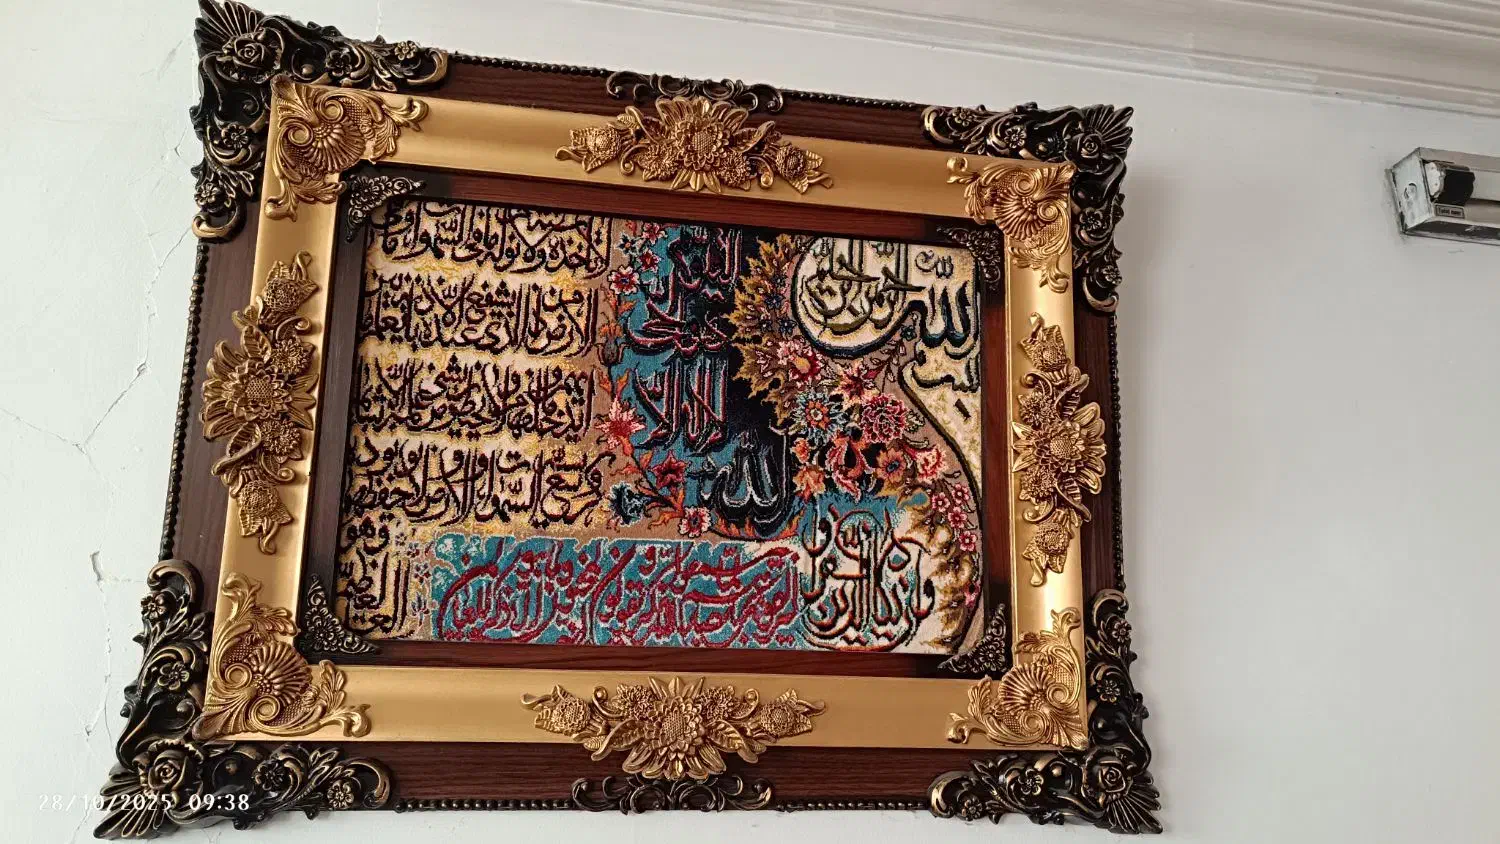 بسم الله الرحمن الرحیم
الله لا اله الا هو الحی القیوم
لا تأخذه سنة ولا نوم له ما فی السموات وما فی
الارض من ذا الذی یشفع عنده الا باذنه یعلم ما بین
ایدیهم وما خلفهم ولا یحیطون بشیء من علمه الا بما شاء
وسع کرسیه السموات والارض ولا یؤده حفظهما
وهو العلی العظیم
وان یکاد الذین کفروا
لیزلقونک بابصارهم لما سمعوا الذکر ویقولون انه لمجنون وما هو الا ذکر للعالمین
28/10/2025 09:38